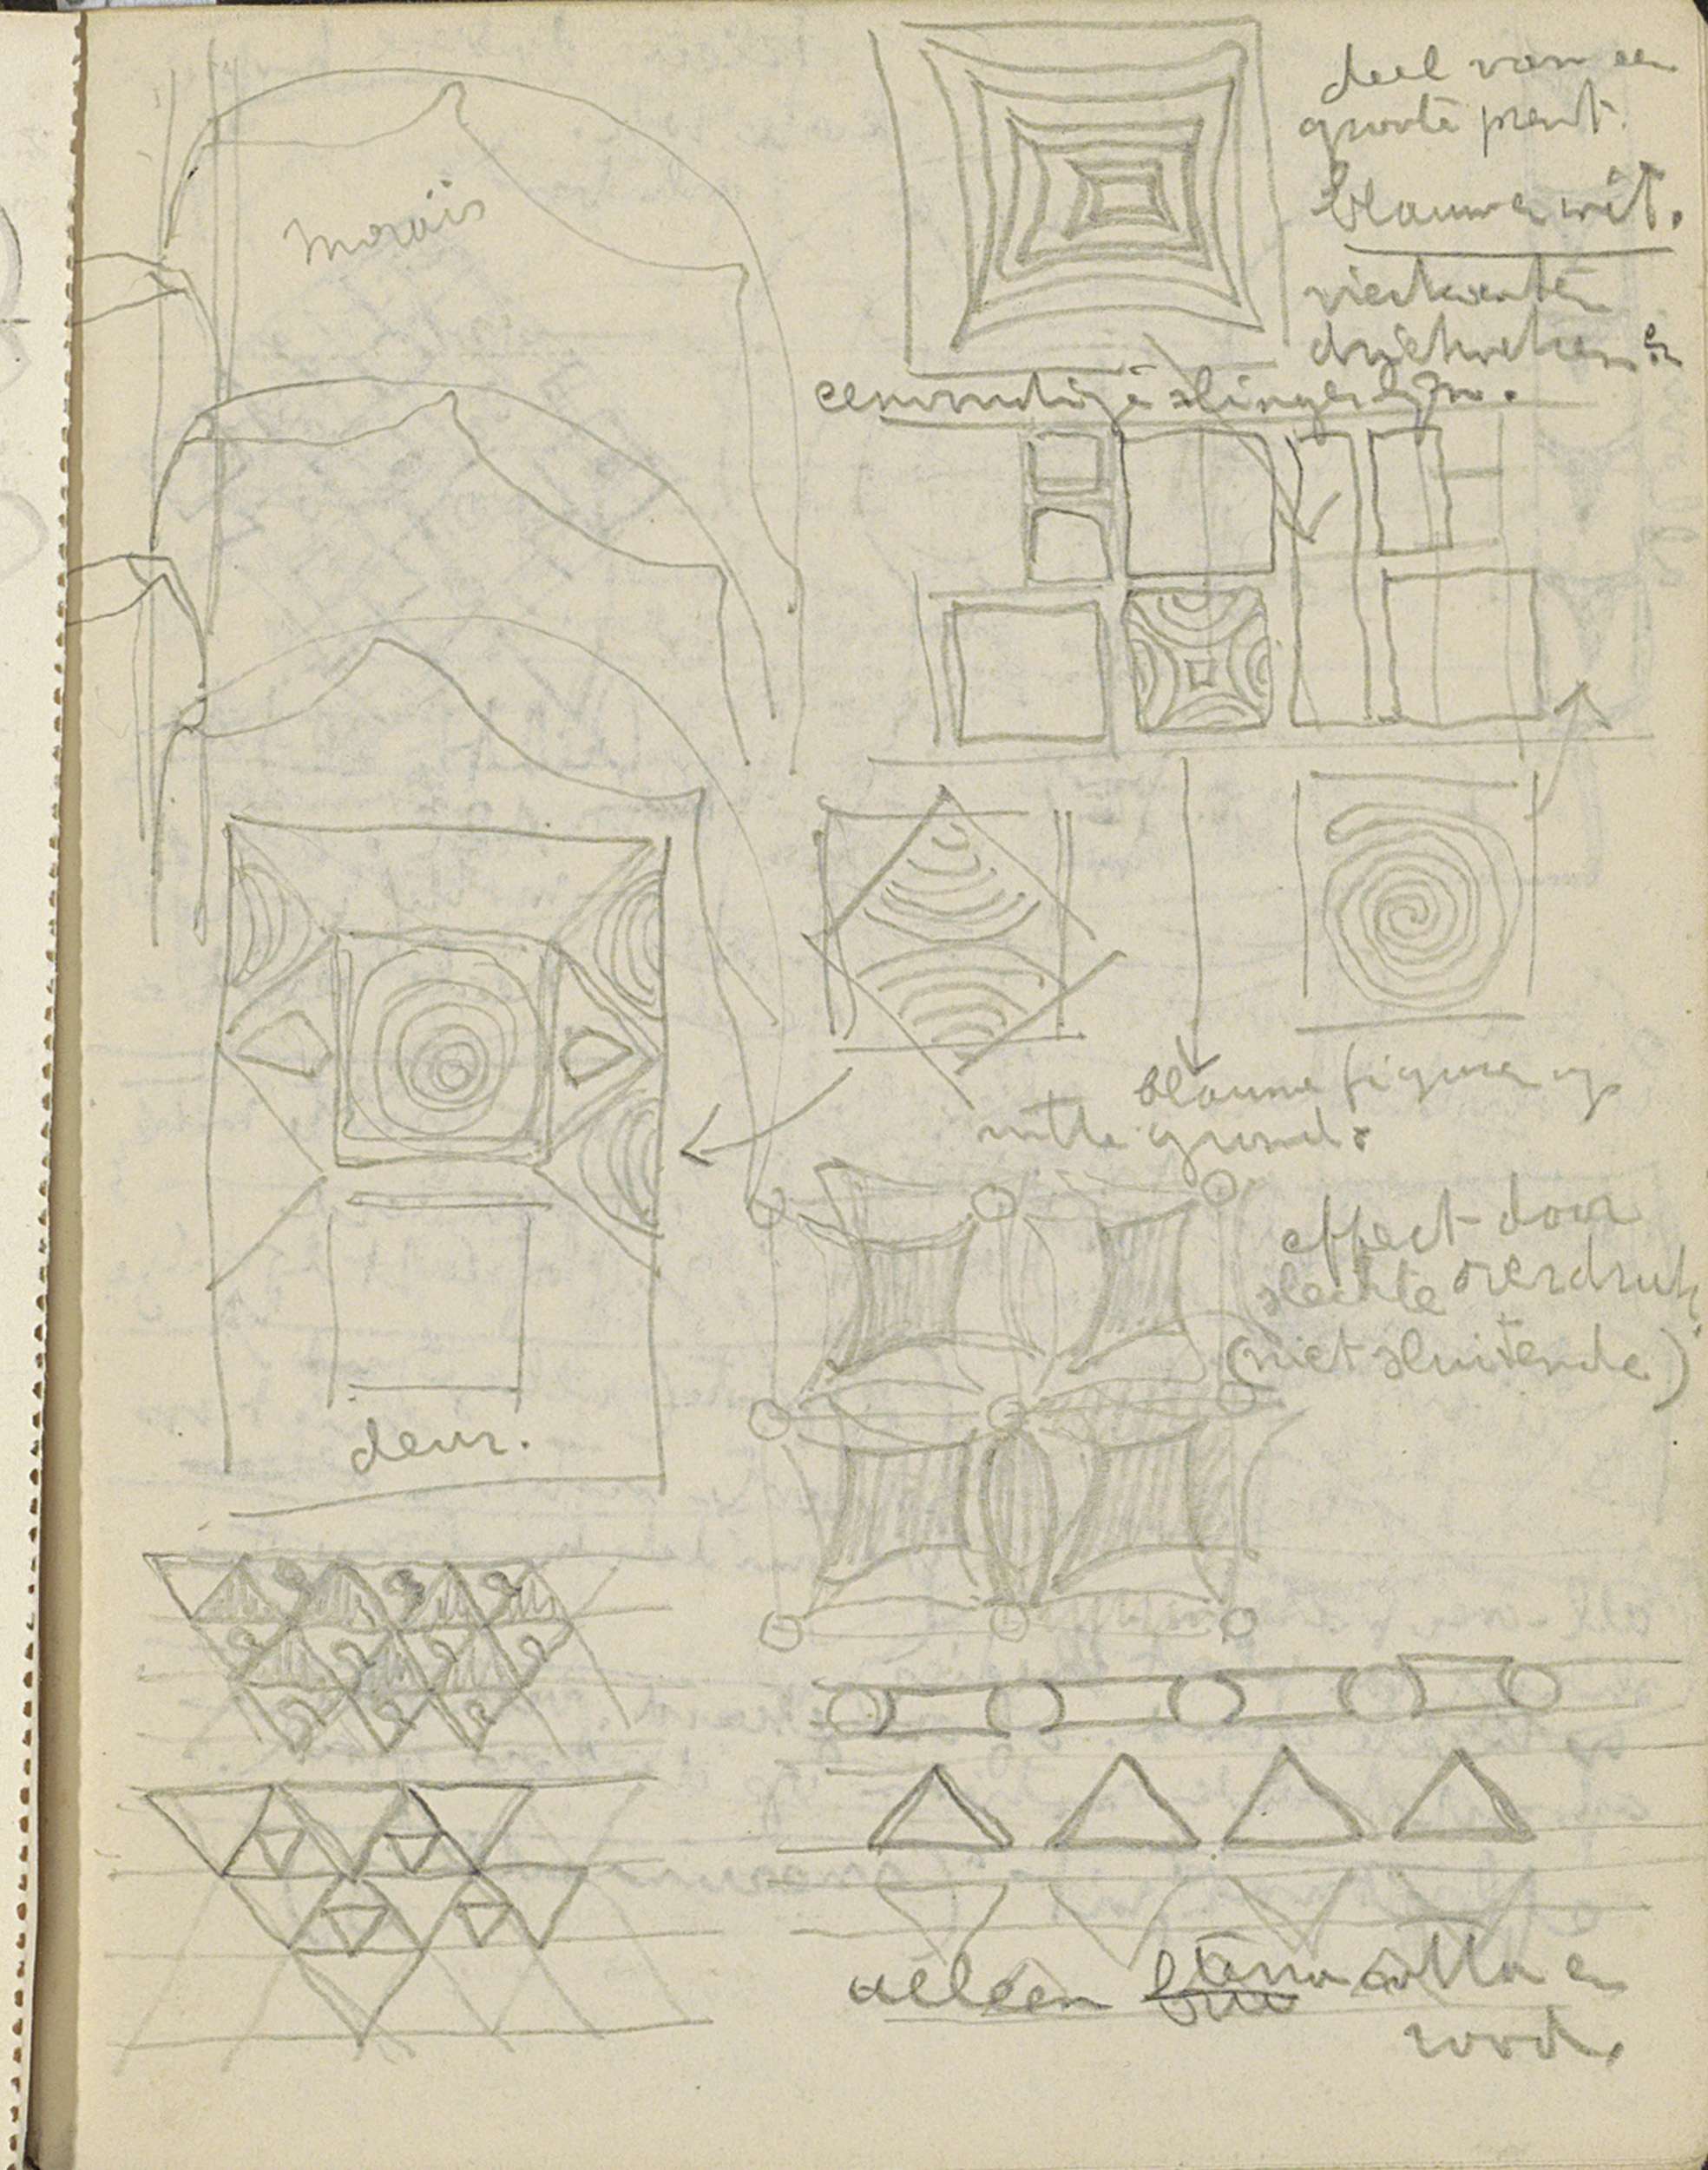 deel van een
groote prent.
blauw en wit.
vierkanten
driehoeken en
eenvoudige slingerlijn.
blauwe figuren op
witte grond.
effect door
slechte overdruk
(niet sluitende)
deur.
alleen terra cotta en
rood.